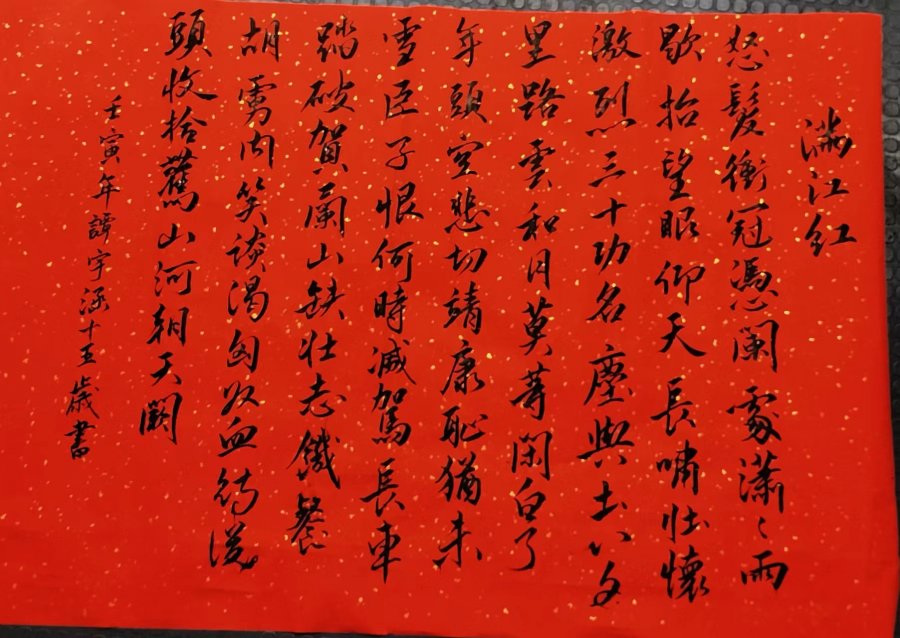 滿江紅
怒髮衝冠憑闌處瀟〻雨
歇抬望眼仰天長嘯壯懷
激烈三十功名塵與土八千
里路雲和月莫等閑白了
年頭空悲切靖康恥猶未
雪臣子恨何時滅駕長車
踏破賀蘭山缺壯志饑餐
胡虜肉笑談渴匈奴血待從
頭收拾舊山河朝天闕
壬寅年譚宇涵十五歲書